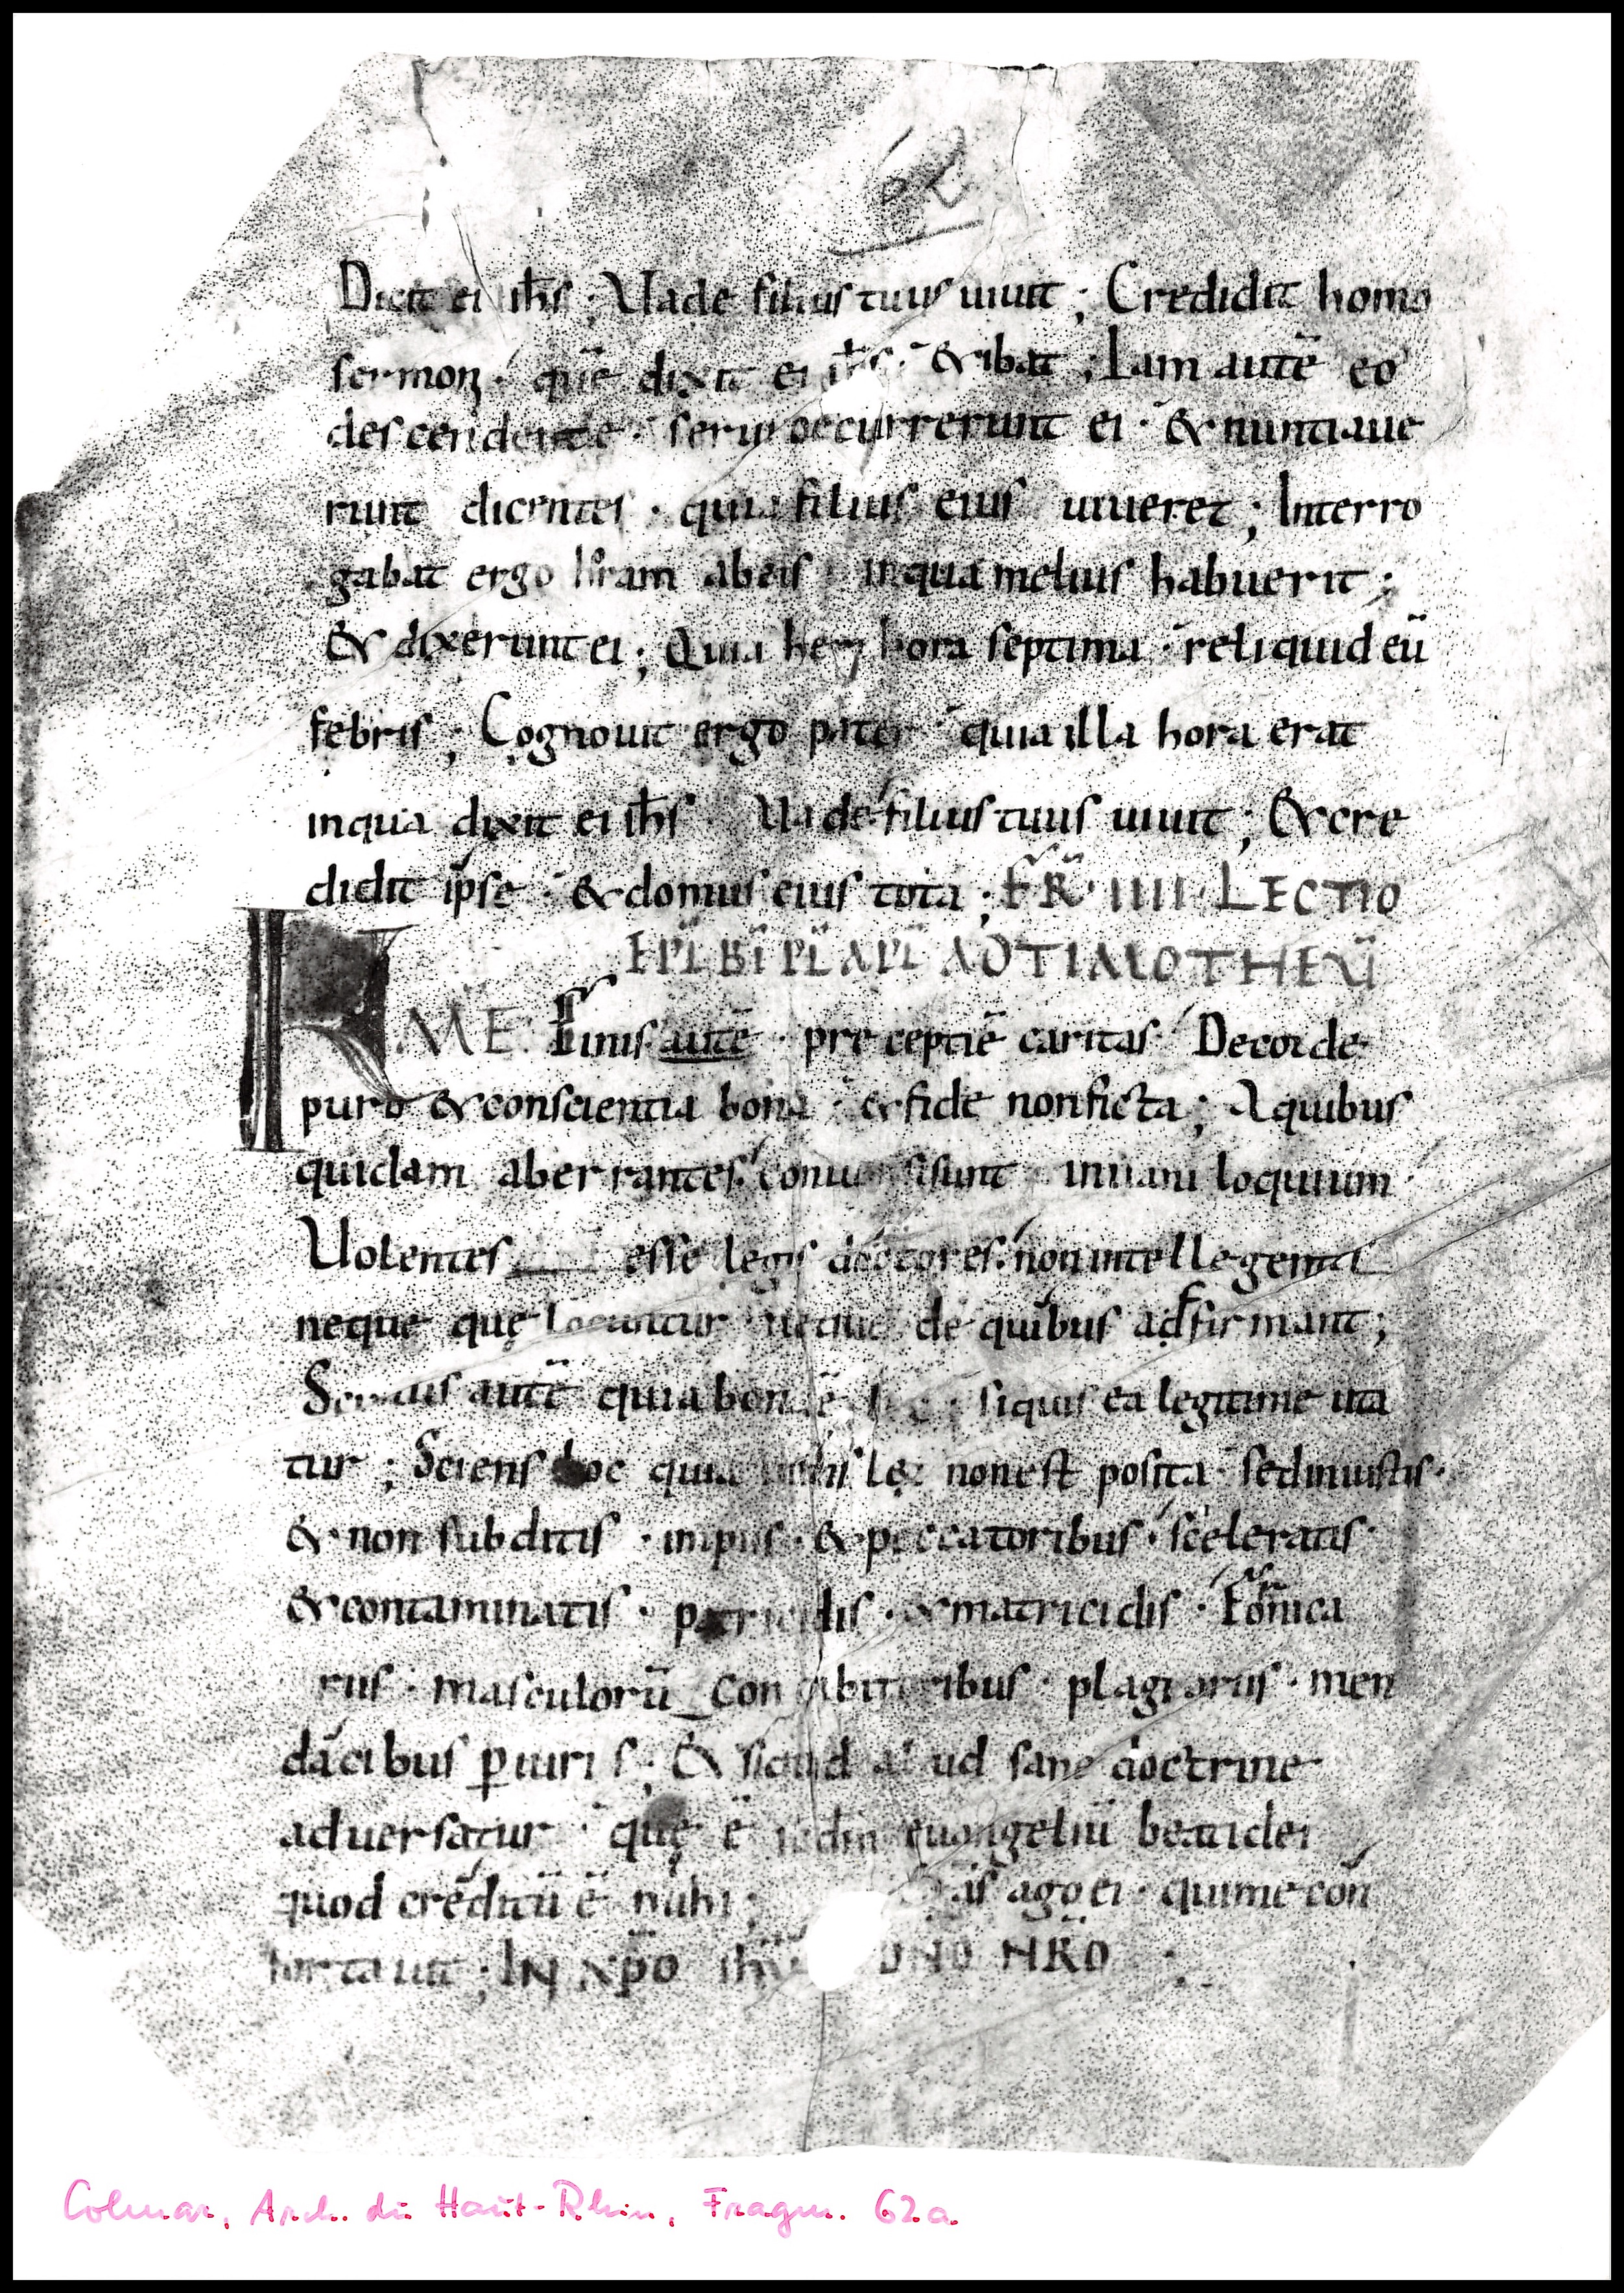 62
Dicit ei ihs̄; Uade filius tuus uiuit; Credidit homo
sermoñ · quē dixit ei ihs̄ · & ibat; Iam autē eo
descendente · serui occurrerunt ei · & nuntiaue
runt dicentes · quia filius eius uiueret; Interro
gabat ergo horam ab eis · in qua melius habuerit;
& dixerunt ei; Quia heri hora septima · reliquid eū
febris; Cognouit ergo pater · quia illa hora erat
in qua dixit ei ihs̄ · Uade filius tuus uiuit; & cre
didit ipse · & domus eius tota; FR̄ · IIII · LECTIO
EPL̄ BĪ PL̄ APL̄ AD TIMOTHEŪ
K · ME · Finis autē · precepti ē caritas · De corde
puro & conscientia bona · & fide non ficta; A quibus
quidam aberrantes · conuersi sunt in uaniloquium ·
Uolentes esse legis doctores · non intellegentes
neque quę locuntur neque de quibus adfirmant;
Scimus autē quia bona ē lex · siquis ea legitime uta
tur; Sciens hoc quia lex non est posita · sed iniustis ·
& non subditis · impiis · & peccatoribus · sceleratis ·
& contaminatis · patricidis · & matricidis · Fornica
riis · masculorū concubitoribus · plagiariis · men
dacibus ꝑiuris; & siquid aliud sane doctrine
aduersatur · quę ē euangeliū beati dei
quod creditū ē mihi; ago ei · qui me con
fortauit; IN XP̄O IHŪ DN̄O NR̄O
Colmar, Arch. du Haut-Rhin, Fragm. 62a